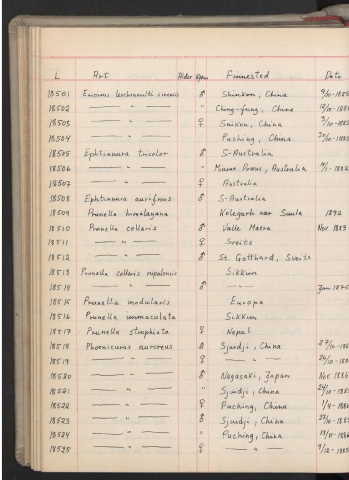 L Art Alder Kjønn Finnested Dato
18501 Enicurus leschenaulti sinensis ♂ Shinkon, China 9/10-1885
18502 — " — " Ching-fung, China 12/10-188
18503 — " — ♀ Snikon, China 3/10-1885
18504 — " — Puching, China 30/10-188
18505 Ephtianura tricolor ♂ S-Australia
18506 — " — Australia 11/1-1882
18507 — " — ♀ Australia
18508 Ephtianura aurifrons ♂ S-Australia
18509 Prunella himalayana Kolegarh nær Simla 1892
18510 Prunella collaris ♂ Valle Maera Nov 1883
18511 — " — ♀ Sveits
18512 — " — ♂ St. Gotthard, Sveits
18513 Prunella collaris nipalensis Sikkim
18514 — " — ♂ — " — Jan 1875
18515 Prunella modularis Europa
18516 Prunella immaculata Sikkim
18517 Prunella strophiata ♀ Nepal
18518 Phoenicurus auroreus ♂ Sjuidji, China 27/10-188
18519 — " — ♀ — " — 26/10-188
18520 — " — ♂ Nagasaki, Japan Nov. 1886
18521 — " — " Sjuidji, China 24/10-188
18522 — " — ♀ Puching, China 1/4-188
18523 — " — ♂ Sjuidji, China 27/10-188
18524 — " — " Puching, China 18/11-188
18525 — " — ♀ — " — 9/12-1885